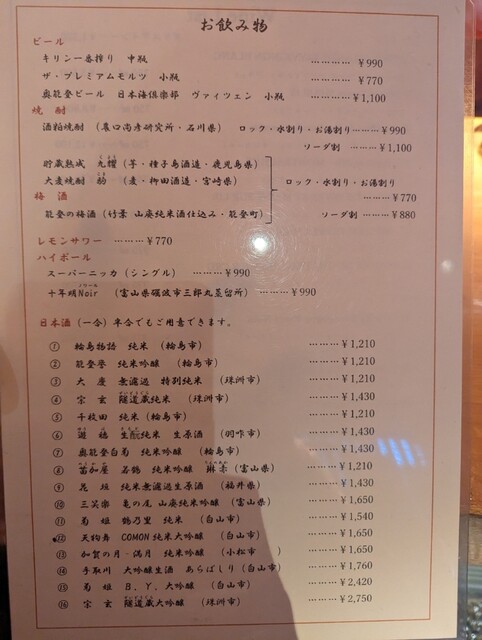 お飲み物
ビール
キリン一番搾り 中瓶 ………… ¥990
ザ・プレミアムモルツ 小瓶 ………… ¥770
奥能登ビール 日本海倶楽部 ヴァイツェン 小瓶 ………¥1,100
焼酎
酒粕焼酎 (農口尚彦研究所・石川県) ロック・水割り・お湯割り……¥990
ソーダ割 ……¥1,100
貯蔵熟成 (芋・種子島酒造・鹿児島県)
大麦焼酎 (麦・柳田酒造・宮崎県) ロック・水割り・お湯割り
………¥770
梅酒
能登の梅酒(竹葉 山廃純米酒仕込み・能登町) ソーダ割 ……¥880
レモンサワー ………¥770
ハイボール
スーパーニッカ(シングル) ………¥990
十年明Noir (富山県礪波市三郎丸蒸留所) ………¥990
日本酒(一合)半合でもご用意できます。
① 輪島物語 純米(輪島市) ………¥1,210
② 能登誉 純米吟醸 (輪島市) ………¥1,210
③ 大慶 無濾過 特別純米 (珠洲市) ………¥1,430
④ 宗玄 隧道蔵純米 (珠洲市) ………¥1,430
⑤ 千枚田 純米(輪島市) ………¥1,210
⑥ 遊穂 生酛純米 生原酒 (羽咋市) ………¥1,430
⑦ 奥能登白菊 純米吟醸 (輪島市) ………¥1,430
⑧ 苗加屋 若鶴 純米吟醸 琳赤(富山県) ………¥1,210
⑨ 花垣 純米無濾過生原酒 (福井県) ………¥1,430
⑩ 三笑楽 亀の尾 山廃純米吟醸 (富山県) ………¥1,650
⑪ 菊姫 鶴乃里 純米 (白山市) ………¥1,540
⑫ 天狗舞 COMON純米大吟醸 (白山市) ………¥1,650
⑬ 加賀の月・満月 純米吟醸 (小松市 ) ………¥1,650
⑭ 手取川 大吟醸生酒 あらばしり(白山市) ………¥1,760
⑮ 菊姫 B.Y.大吟醸 (白山市) ………¥2,420
⑯ 宗玄 隧道蔵大吟醸 (珠洲市) ………¥2,750